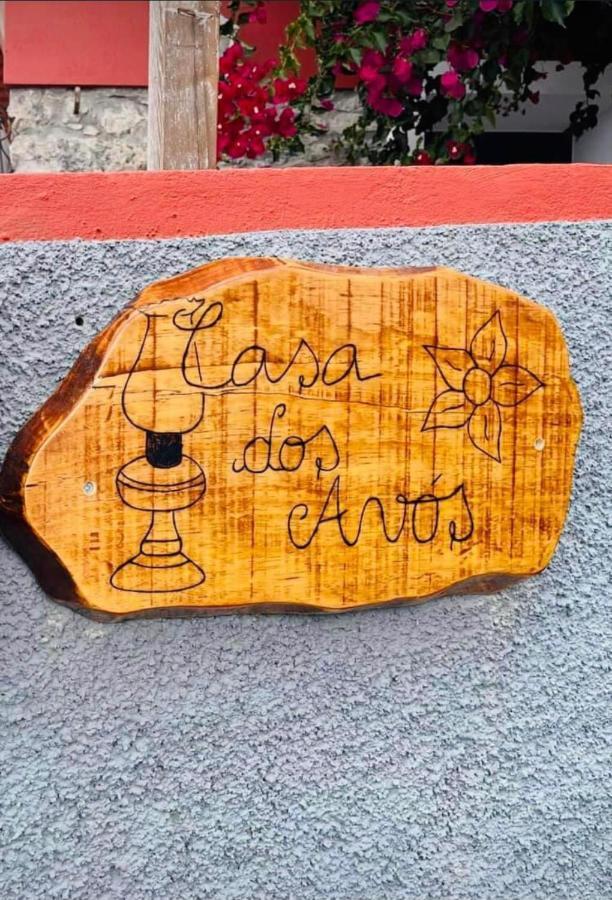 Casa
dos
Avós